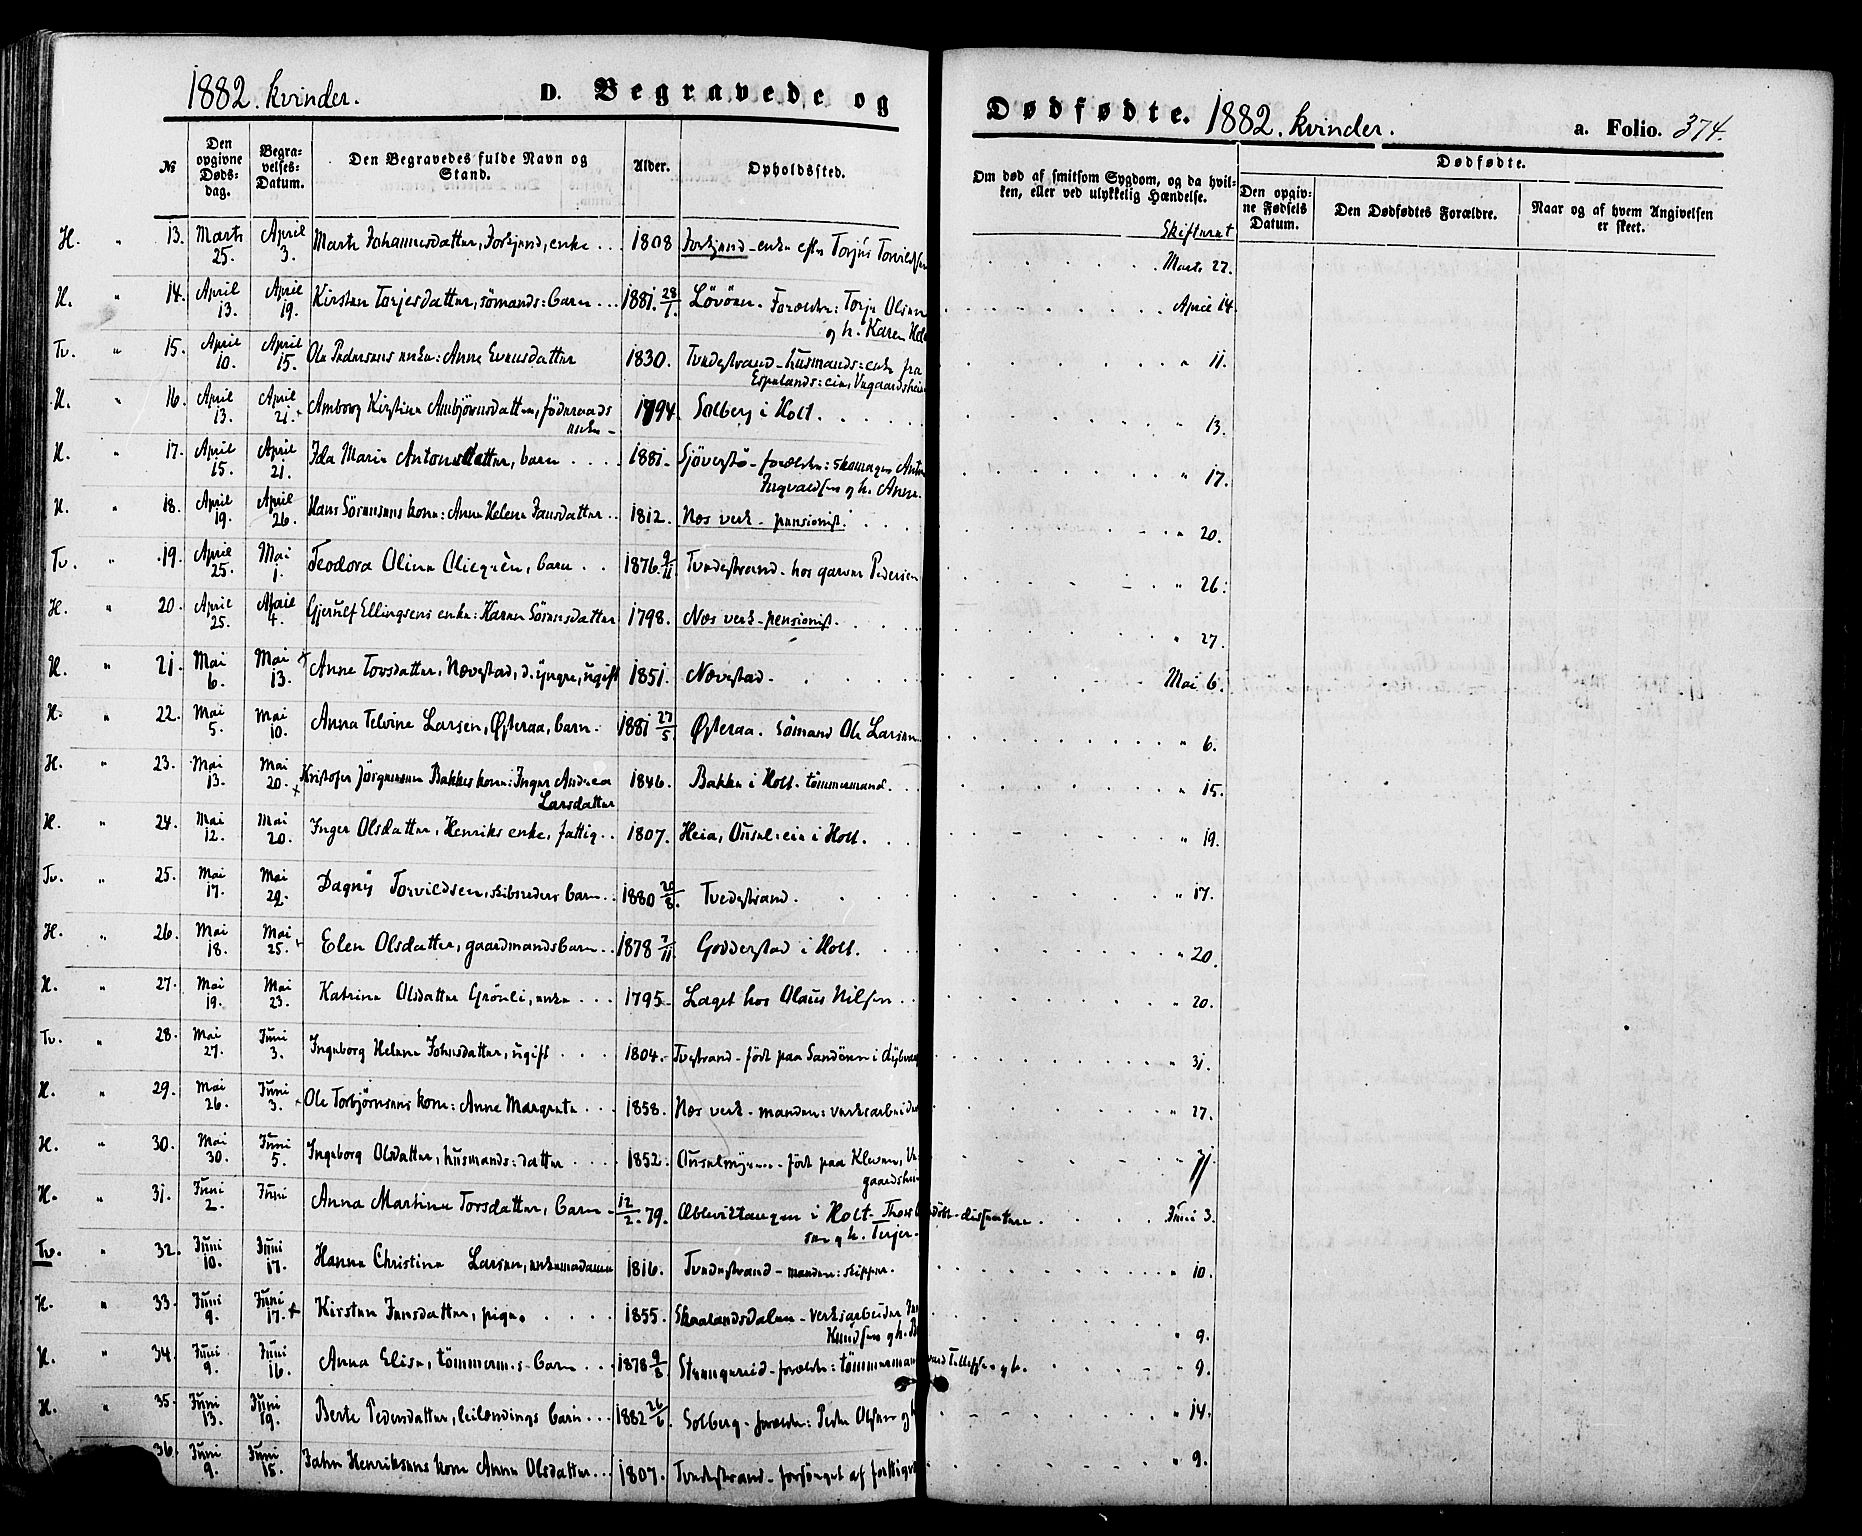 1882. kvinder. D. Begravede og Dødfødte. 1882. kvinder. a. Folio. 374.
№ Den opgivne Døds-dag. Begra-velses-Datum. Den Begravedes fulde Navn og Stand. Alder. Opholdssted. Om død af smitsom Sygdom, og da hvil-ken, eller ved ulykkelig Hændelse. Dødfødte. Den opgiv-ne Fødsels Datum. Den Dødfødtes Forældre. Naar og af hvem Angivelsen er skeet.
Skifteret
H. " 13. Marts 25. April 3. Marte Johannesdatter, enke 1808 enke efter Torjus Marts 27.
H. " 14. April 13. April 19. Kirsten Torjesdatter, sömands: barn 1881. 28/1. Lövöen. Forældre: Torje Olsen
og h. Karen April 14.
Tv. " 15. April 10. April 15. Ole Pedersens enke: Anne Evensdatter 1830. Tvedestrand - husmands: enke fra
Espelands: eie, " 11.
H. " 16. April 13. April 21. + Amborg Kirstine Ambjörnsdatter, föderaads
enke - 1794. Solberg i Holt. " 13.
H. " 17. April 15. April 21. Ida Marie Antonsdatter, barn 1881. forældre: skomager Anton
Ingvaldsen og h. Anne. " 17.
H. " 18. April 19. April 26. Hans Sörensens kone: Anne Helene Jansdatter 1812. Nes verk - pensionist. " 20.
Tv. " 19. April 25. Mai 1. Teodora Oline barn 1876. 9/11 Tvedestrand - hos garver Pedersen " 26.
H. " 20. April 25. 4. Gjerulf Ellingsens enke: Karen Sörensdatter 1798. Nes verk - pensionist. " 27.
H. " 21. Mai 6. Mai 13. + Anne Torsdatter, Nævestad, d. yngre, ugift 1851. Nævestad. Mai 6.
H. " 22. Mai 5. Mai 10. Anna Telvine Larsen, Österaa, barn. 1881 27/5. Österaa. Sömand Ole Larsen " 6.
H. " 23. Mai 13. Mai 20. + Kristofer Jörgensen Bakkes kone: Inger Andrea
Larsdatter 1846. Bakke i Holt. tömmermand. " 15.
H. " 24. Mai 12. Mai 20. Inger Olsdatter, Henriks enke, fattig. 1807. Heia, i Holt. " 19.
Tv. " 25. Mai 17. Mai Dagny Torvildsen, skibsreders barn. 1880 20/8. Tvedestrand. " 17.
H. " 26. Mai 18. Mai 25. Elen Olsdatter, gaardmandsbarn 1878 7/11. Godderstad i Holt. " 20.
H. " 27. Mai 19. Mai 23. Katrine Olsdatter Grönli, enke 1795. Laget hos Olaus Nilsen " 20.
Tv. " 28. Mai 27. Juni 3. Ingeborg Helene Johnsdatter, ugift 1804. Tvestrand - födt paa Sandöen i " 31.
H. " 29. Mai 26. Juni 3. Ole Torbjörnsens kone: Anne Margrete 1858. Nes verk - manden: verksarbeider " 27.
H. " 30. Mai 30. Juni 5. Ingeborg Olsdatter, husmands: datter 1852. födt paa Kleven, " 31.
H. " 31. Juni 2. Juni Anna Martine Torsdatter, barn 12/2. 79. i Holt - dissentere. Juni 3.
Tv. " 32. Juni 10. Juni 17. Hanne Christine Larsen, enkemadame 1816. Tvedestrand - manden: skipper. " 10.
H. " 33. Juni 9. Juni 17. + Kirsten Jensdatter, pige. 1855. Skaalandsdalen - verksarbeider
Knudsen og h. " 9.
H. " 34. Juni 9. Juni 16. Anna Elise, tömmerm:s barn 1878 9/8. forældre: tömmermand Tellefsen og h. " 9.
H. " 35. Juni 13. Juni 19. Berte Pedersdatter, leilændings barn 1882 26/6. Solberg - forældre: Peder Olsen og h. " 14.
36. Juni 9. Juni 15. Henriksens kone Anne Olsdatter 1807. Tvedestrand - forsörget af " 9.